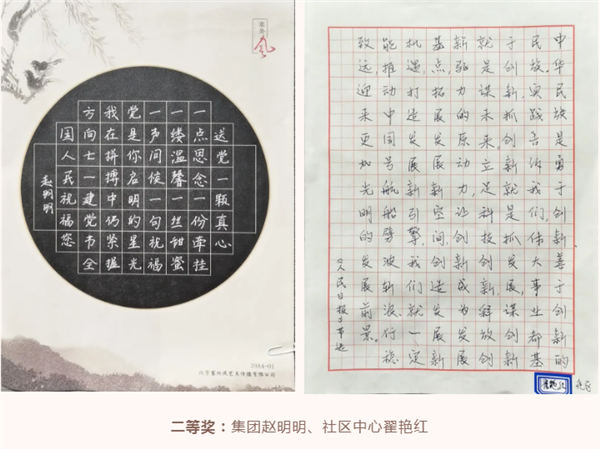 塞外风
送党一颗真心
一点思念一份牵挂
一缕温馨一丝甜蜜
一声问候一句祝福
党是你启明的星光
我在拼搏中仍紧握
方向士一建党节全
国人民祝福您
赵明明
中华民族是勇于创新善于创新的
民族。实践告诉我们,伟大事业都基
于创新。创新就是抓发展,谋创新
就是谋未来。立足科技创新,释放创新
原动力,让创新成为发展
基点,拓展发展新空间,创造发展新
机遇,打造发展新引擎,我们就一定
能推动中国号航船劈波斩浪、行稳
致远,迎来更加光明的发展前景。
《人民日报》节选
二等奖:集团赵明明、社区中心翟艳红